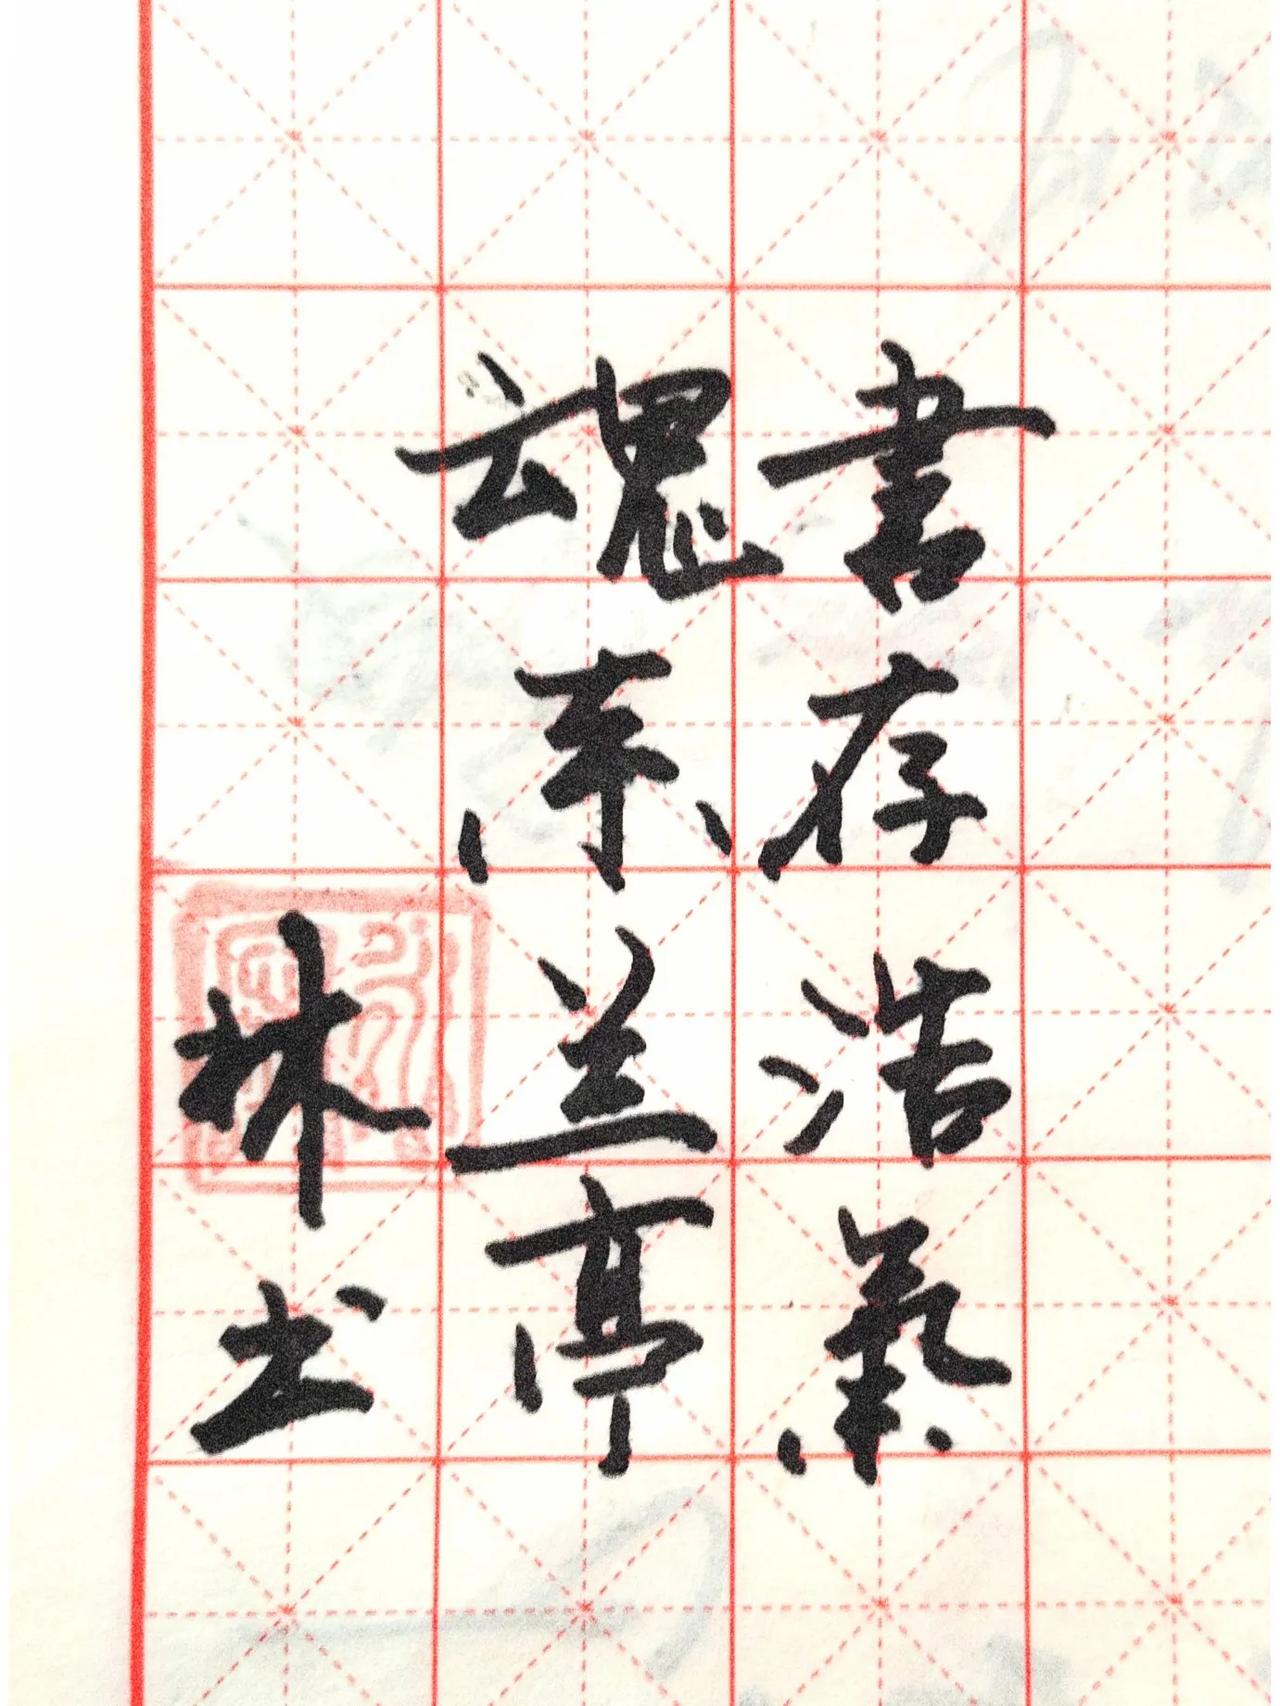 書存浩氣
魂系兰亭
林书